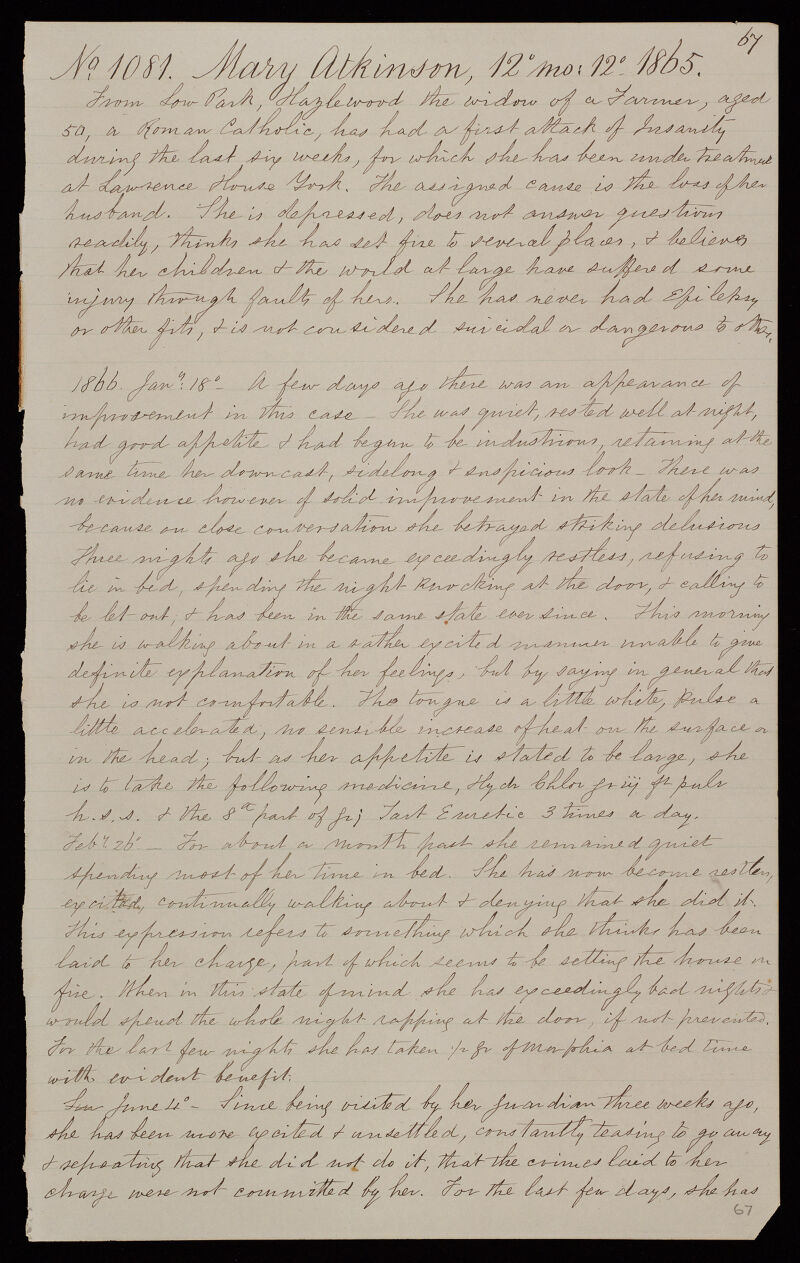 67
No. 1081. Mary Atkinson, 12o mo: 12o 1865.
From Low Park, Hazlewood the widow of a Farmer, aged
50, a Roman Catholic, has had a first attack of Insanity
during the last six weeks, for which she has been under treatment
at Lawrence House York. The assigned cause is the loss of her
husband. She is depressed, does not answer questions
readily, thinks she has set fire to several places, & believes
that her children & the world at large have suffered some
injury through faults of hers. She has never had Epilepsy
or other fits, & is not considered suicidal or dangerous to others.
1866. Jany. 18o - A few days ago there was an appearance of
improvement in this case - She was quiet, rested well at night,
had good appetite & had begun to be industrious, retaining at the
same time her downcast, sidelong & suspicious look - There was
no evidence however of solid improvement in the state of her mind,
because on close conversation she betrayed striking delusions
Three nights ago she became exceedingly restless, refusing to
lie in bed, spending the night knocking at the door, & calling to
be let out; & has been in the same state ever since. This morning
she is walking about in a rather excited manner unable to give
definite explanation of her feelings, but by saying in general that
she is not comfortable. The tongue is a little white, pulse a
little accelerated, no sensible increase of heat on the surface or
in the head; but as her appetite is stated to be large, she
is to take the following medicine, Hydr Chlor gr iij ft pulv
h.s.s. & the 8th part of gr j Tart Emetic 3 times a day.
Feby. 26o - For about a month past she remained quiet
spending most of her time in bed. She has now become restless,
excited, continually walking about & denying that she did it.
This expression refers to something which she thinks has been
laid to her charge, part of which seems to be setting the house on
fire. When in this state of mind she has exceedingly bad nights &
would spend the whole night rapping at the door, if not prevented.
For the last few nights she has taken 1/2 gr of Morphia at bed time
with evident benefit.
June 4o - Since being visited by her guardian three weeks ago,
she has been more excited & unsettled, constantly teasing to go away
& repeating that she did not do it, that the crimes laid to her
charge were not committed by her. For the last few days, she has
67